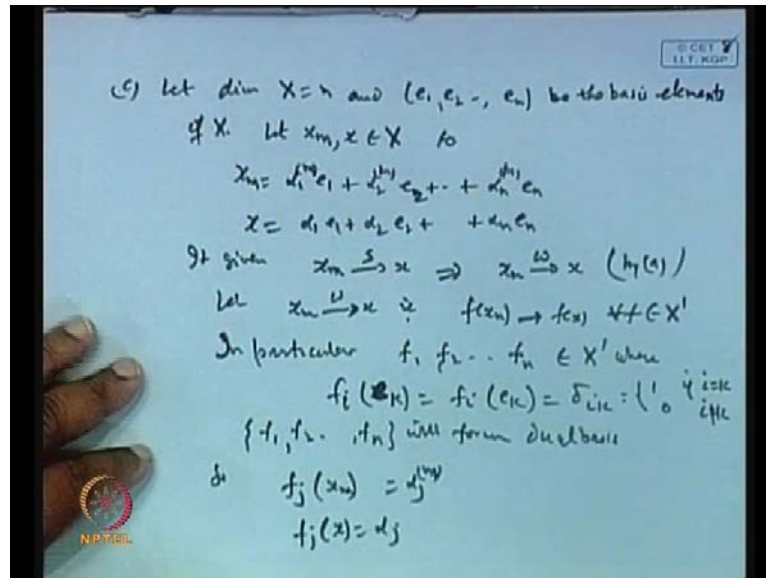 © CET
I.I.T. KGP
8
(c) Let dim X = n and (e₁, e₂ -, eₙ) be the basis elements
of X. Let xₘ, x ∈ X so
xₘ = α₁⁽ᵐ⁾e₁ + α₂⁽ᵐ⁾e₂ + · + αₙ⁽ᵐ⁾eₙ
x = α₁e₁ + α₂e₂ + + αₙeₙ
It given xₘ —s→ x ⇒ xₙ —w→ x (by (a))
Let xₙ —w→ x ie f(xₙ) → f(x) ∀ f ∈ X'
In particular f₁ f₂ .. fₙ ∈ X' where
fᵢ(eₖ) = fᵢ(eₖ) = δᵢₖ = { 1 if i=k 0 i≠k
{f₁, f₂ . , fₙ} will form dual basis
So fⱼ(xₘ) = αⱼ⁽ᵐ⁾
fⱼ(x) = αⱼ
NPTEL